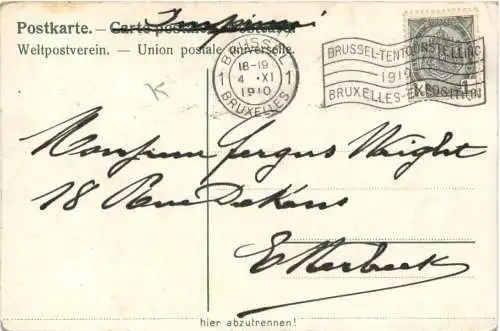 Imprimé
Postkarte. — Carte postale.
Weltpostverein. — Union postale universelle.
BRUSSEL
18-19
1 4 · XI 1
1910
BRUXELLES
BRUSSEL-TENTOONSTELLING
1910
BRUXELLES-EXPOSITION
K
Monsieur Fergus Wright
18 Rue
Etterbeek
hier abzutrennen!